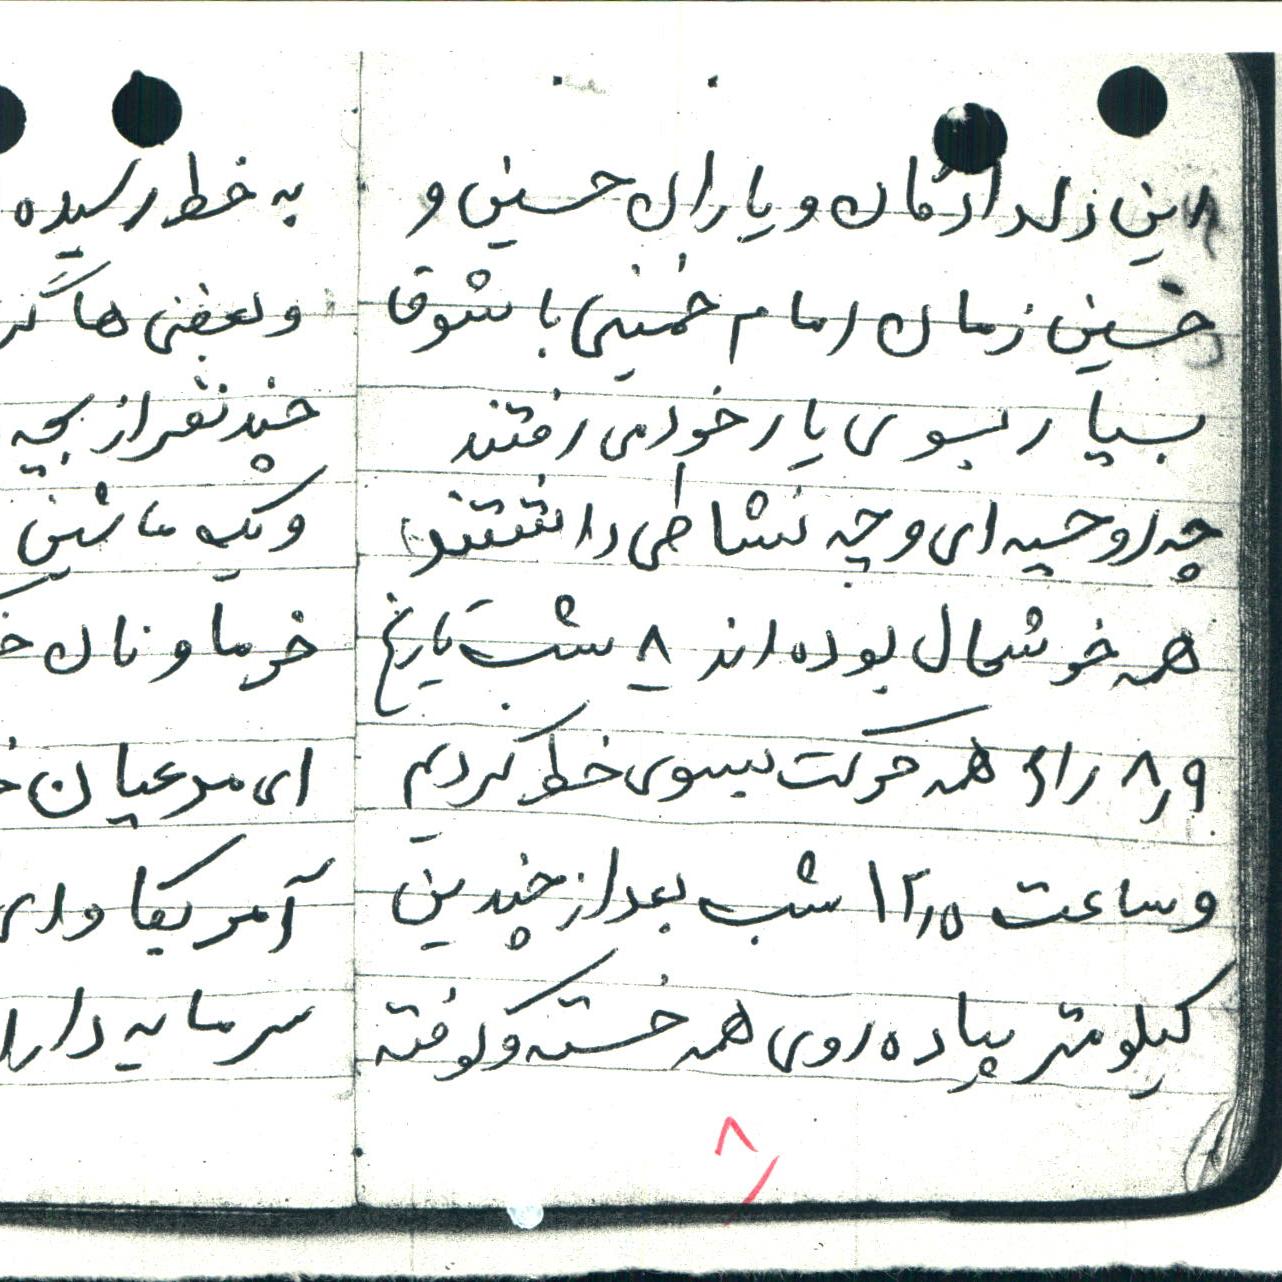 این زلدادگان و یاران حسین و
حسین زمان امام خمینی با شوق
بسیار بسوی یار خود می رفتند
چه روحیه ای و چه نشاطی داشتند
همه خوشحال بوده اند ۸ شب تاریخ
همه حرکت بسوی خط کردیم
و ساعت ۱۲٫۵ شب بعد از چندین
کیلومتر پیاده روی همه خسته و کوفته
۸
به خط رسیده
و بعضی ها
چند نفر از بچه
و یک ماشین
خرما و نان
ای مدعیان
آمریکا و ای
سرمایه